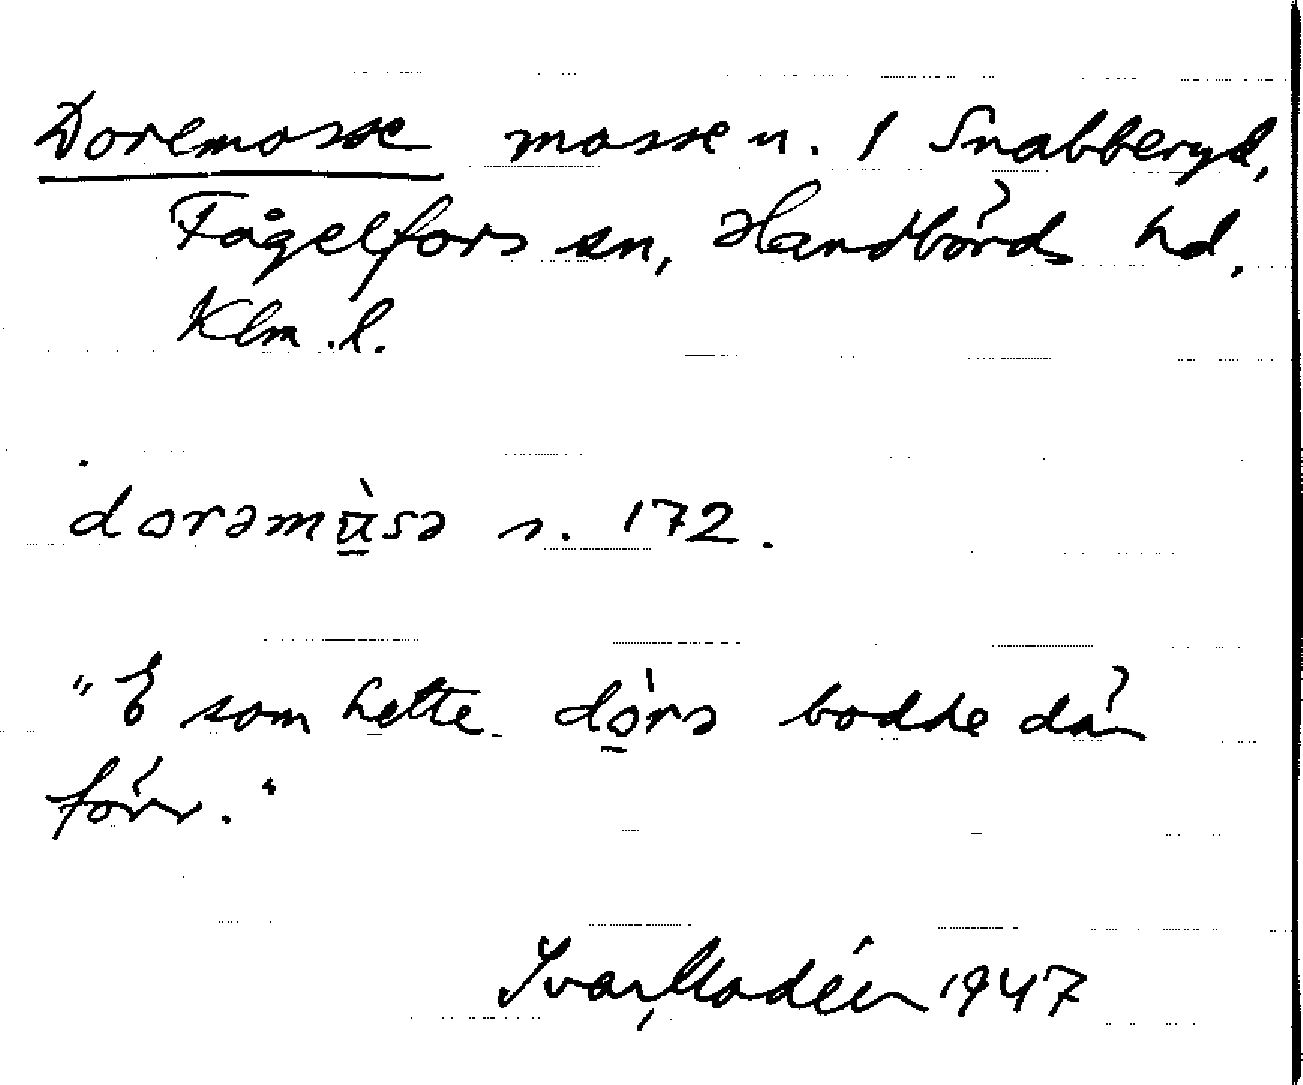 Doremosse mosse u. 1 Snabberyd,
Fågelfors sn, Handbörds hd,
Klm. l.
dorəmùsə s. 172.
"E som hette dòrə bodde där
förr."
Ivar Modéer 1947